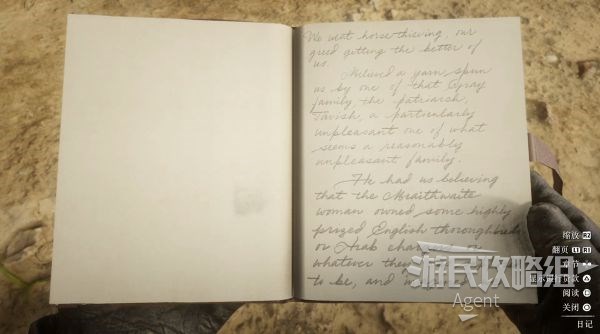 We went horse thieving, our
greed getting the better of
us.
Believed a yarn spun
us by one of that Gray
family, the patriarch,
Tavish, a particularly
unpleasant one of what
seems a reasonably
unpleasant family.
He had us believing
that the Braithwaite
woman owned some highly
prized English thoroughbreds
or Arab
whatever they
to be, and
游民攻略组
Agent
缩放 R2
翻页 L1 R1
章节
阅读
关闭
日记